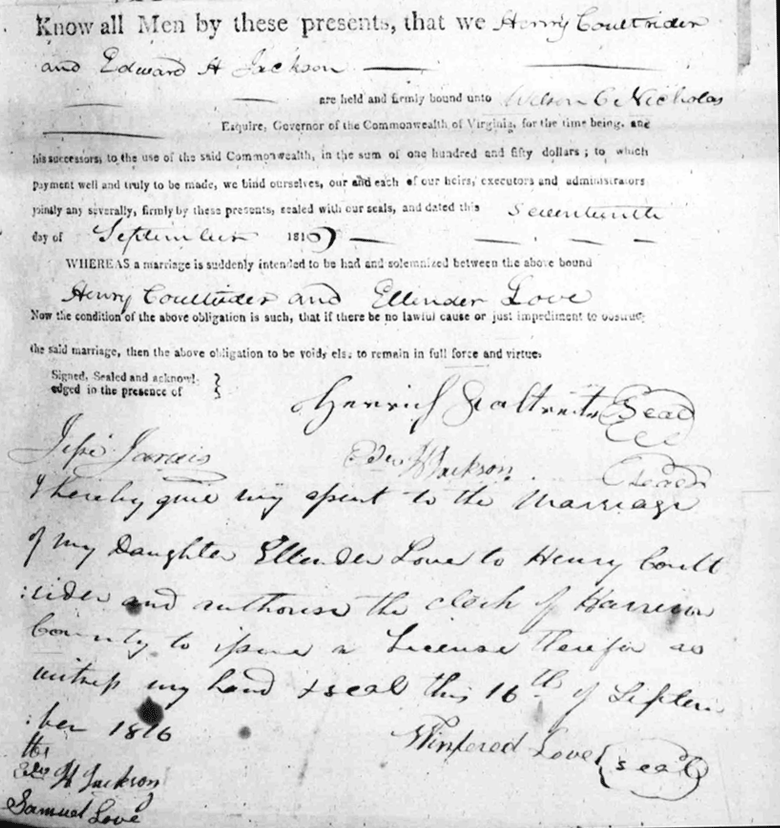 Know all Men by these presents, that we Henry Coultrider
and Edward H Jackson
are held and firmly bound unto Wilson C Nicholas
Esquire, Governor of the Commonwealth of Virginia, for the time being, and
his successors, to the use of the said Commonwealth, in the sum of one hundred and fifty dollars ; to which
payment well and truly to be made, we bind ourselves, our and each of our heirs, executors and administrators
jointly any severally, firmly by these presents, sealed with our seals, and dated this Seventeenth
day of September 1816
WHEREAS a marriage is suddenly intended to be had and solemnized between the above bound
Henry Coultrider and Ellender Love
Now the condition of the above obligation is such, that if there be no lawful cause or just impediment to obstruct
the said marriage, then the above obligation to be void, else to remain in full force and virtue.
Signed, Sealed and acknowl-
edged in the presence of
Seal
Jesse Jarvis
Edw H Jackson Seal
I hereby give my asent to the Marriage
of my Daughter Ellender Love to Henry Coult
:rider and authorise the clerk of Harrison
County to issue a License therefor as
witness my hand & seal this 16th of Septem
:ber 1816
Winfered Love seal
Edw H Jackson
Samuel Love